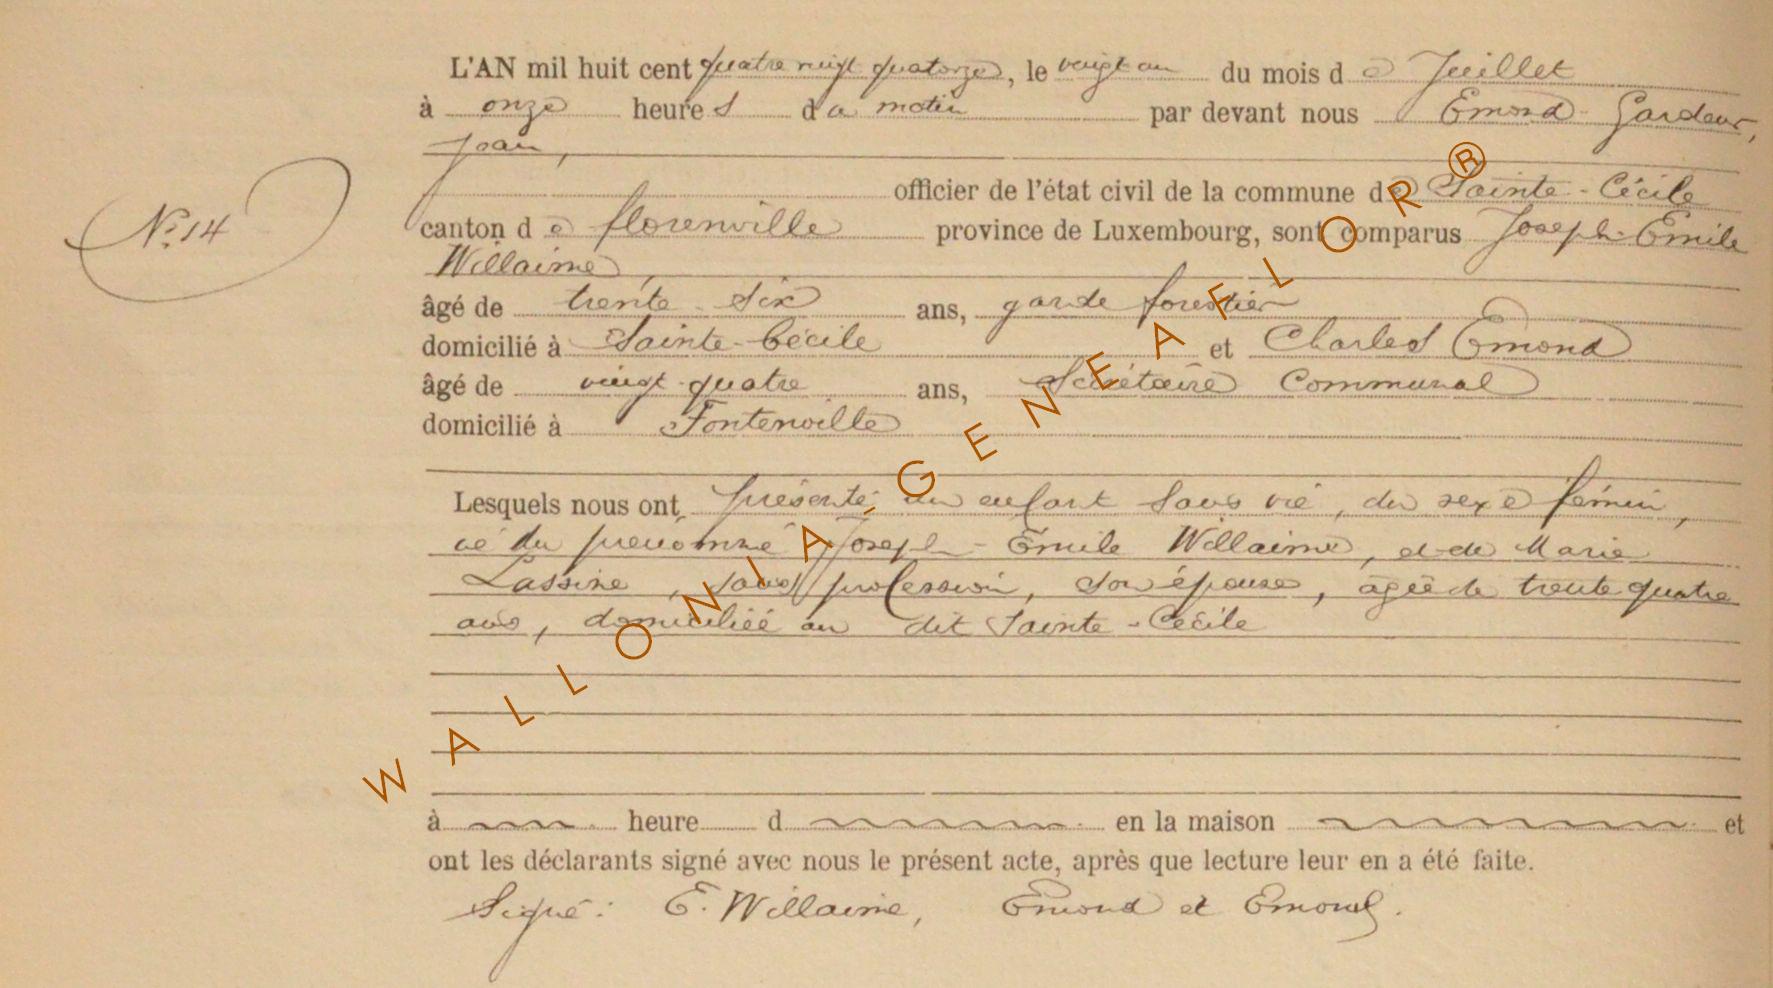 L'AN mil huit cent quatre vingt quatorze, le vingt un du mois de Juillet
à onze heures du matin par devant nous Emond Gardeur,
Jean,
officier de l'état civil de la commune de Sainte-Cécile
N° 14
canton de florenville province de Luxembourg, sont comparus Joseph-Emile
Willaime,
âgé de trente-six ans, garde forestier
domicilié à Sainte-Cécile et Charles Emond
âgé de vingt-quatre ans, Secrétaire Communal
domicilié à Fontenoille
Lesquels nous ont présenté un enfant sans vie, du sexe féminin,
né du prénommé Joseph-Emile Willaime, et de Marie
Lassine, sans profession, son épouse, âgée de trente quatre
ans, domiciliée au dit Sainte-Cécile
à heure d en la maison et
ont les déclarants signé avec nous le présent acte, après que lecture leur en a été faite.
Signé: E. Willaime, Emond et Emond.
WALLONIA-GENEAFLOR®